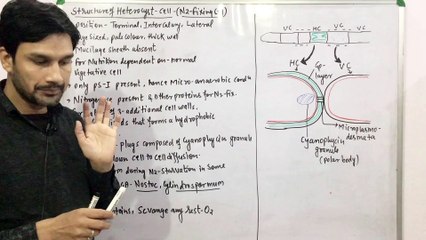 Structure of Heterocyst-Cell-(N2-fixing
position - Terminal, Intercalary, Lateral
sized, pale colour, thick wall
Mucilage sheath absent
for Nutrition dependent on - normal
Vegetative cell
only PS-I present, hence Micro-anaerobic condn
present & other proteins for N2-fix.
of additional cell walls.
that forms a hydrophobic
plugs composed of Cyanophycin granule
down cell to cell diffusion.
during N2-starvation in some
Nostoc, Cylindrospermum
Scavange any rest-O2
VC HC VC
HC
Gp-layer
VC
Microplasmodesmata
Cyanophycin
granule
(polar body)